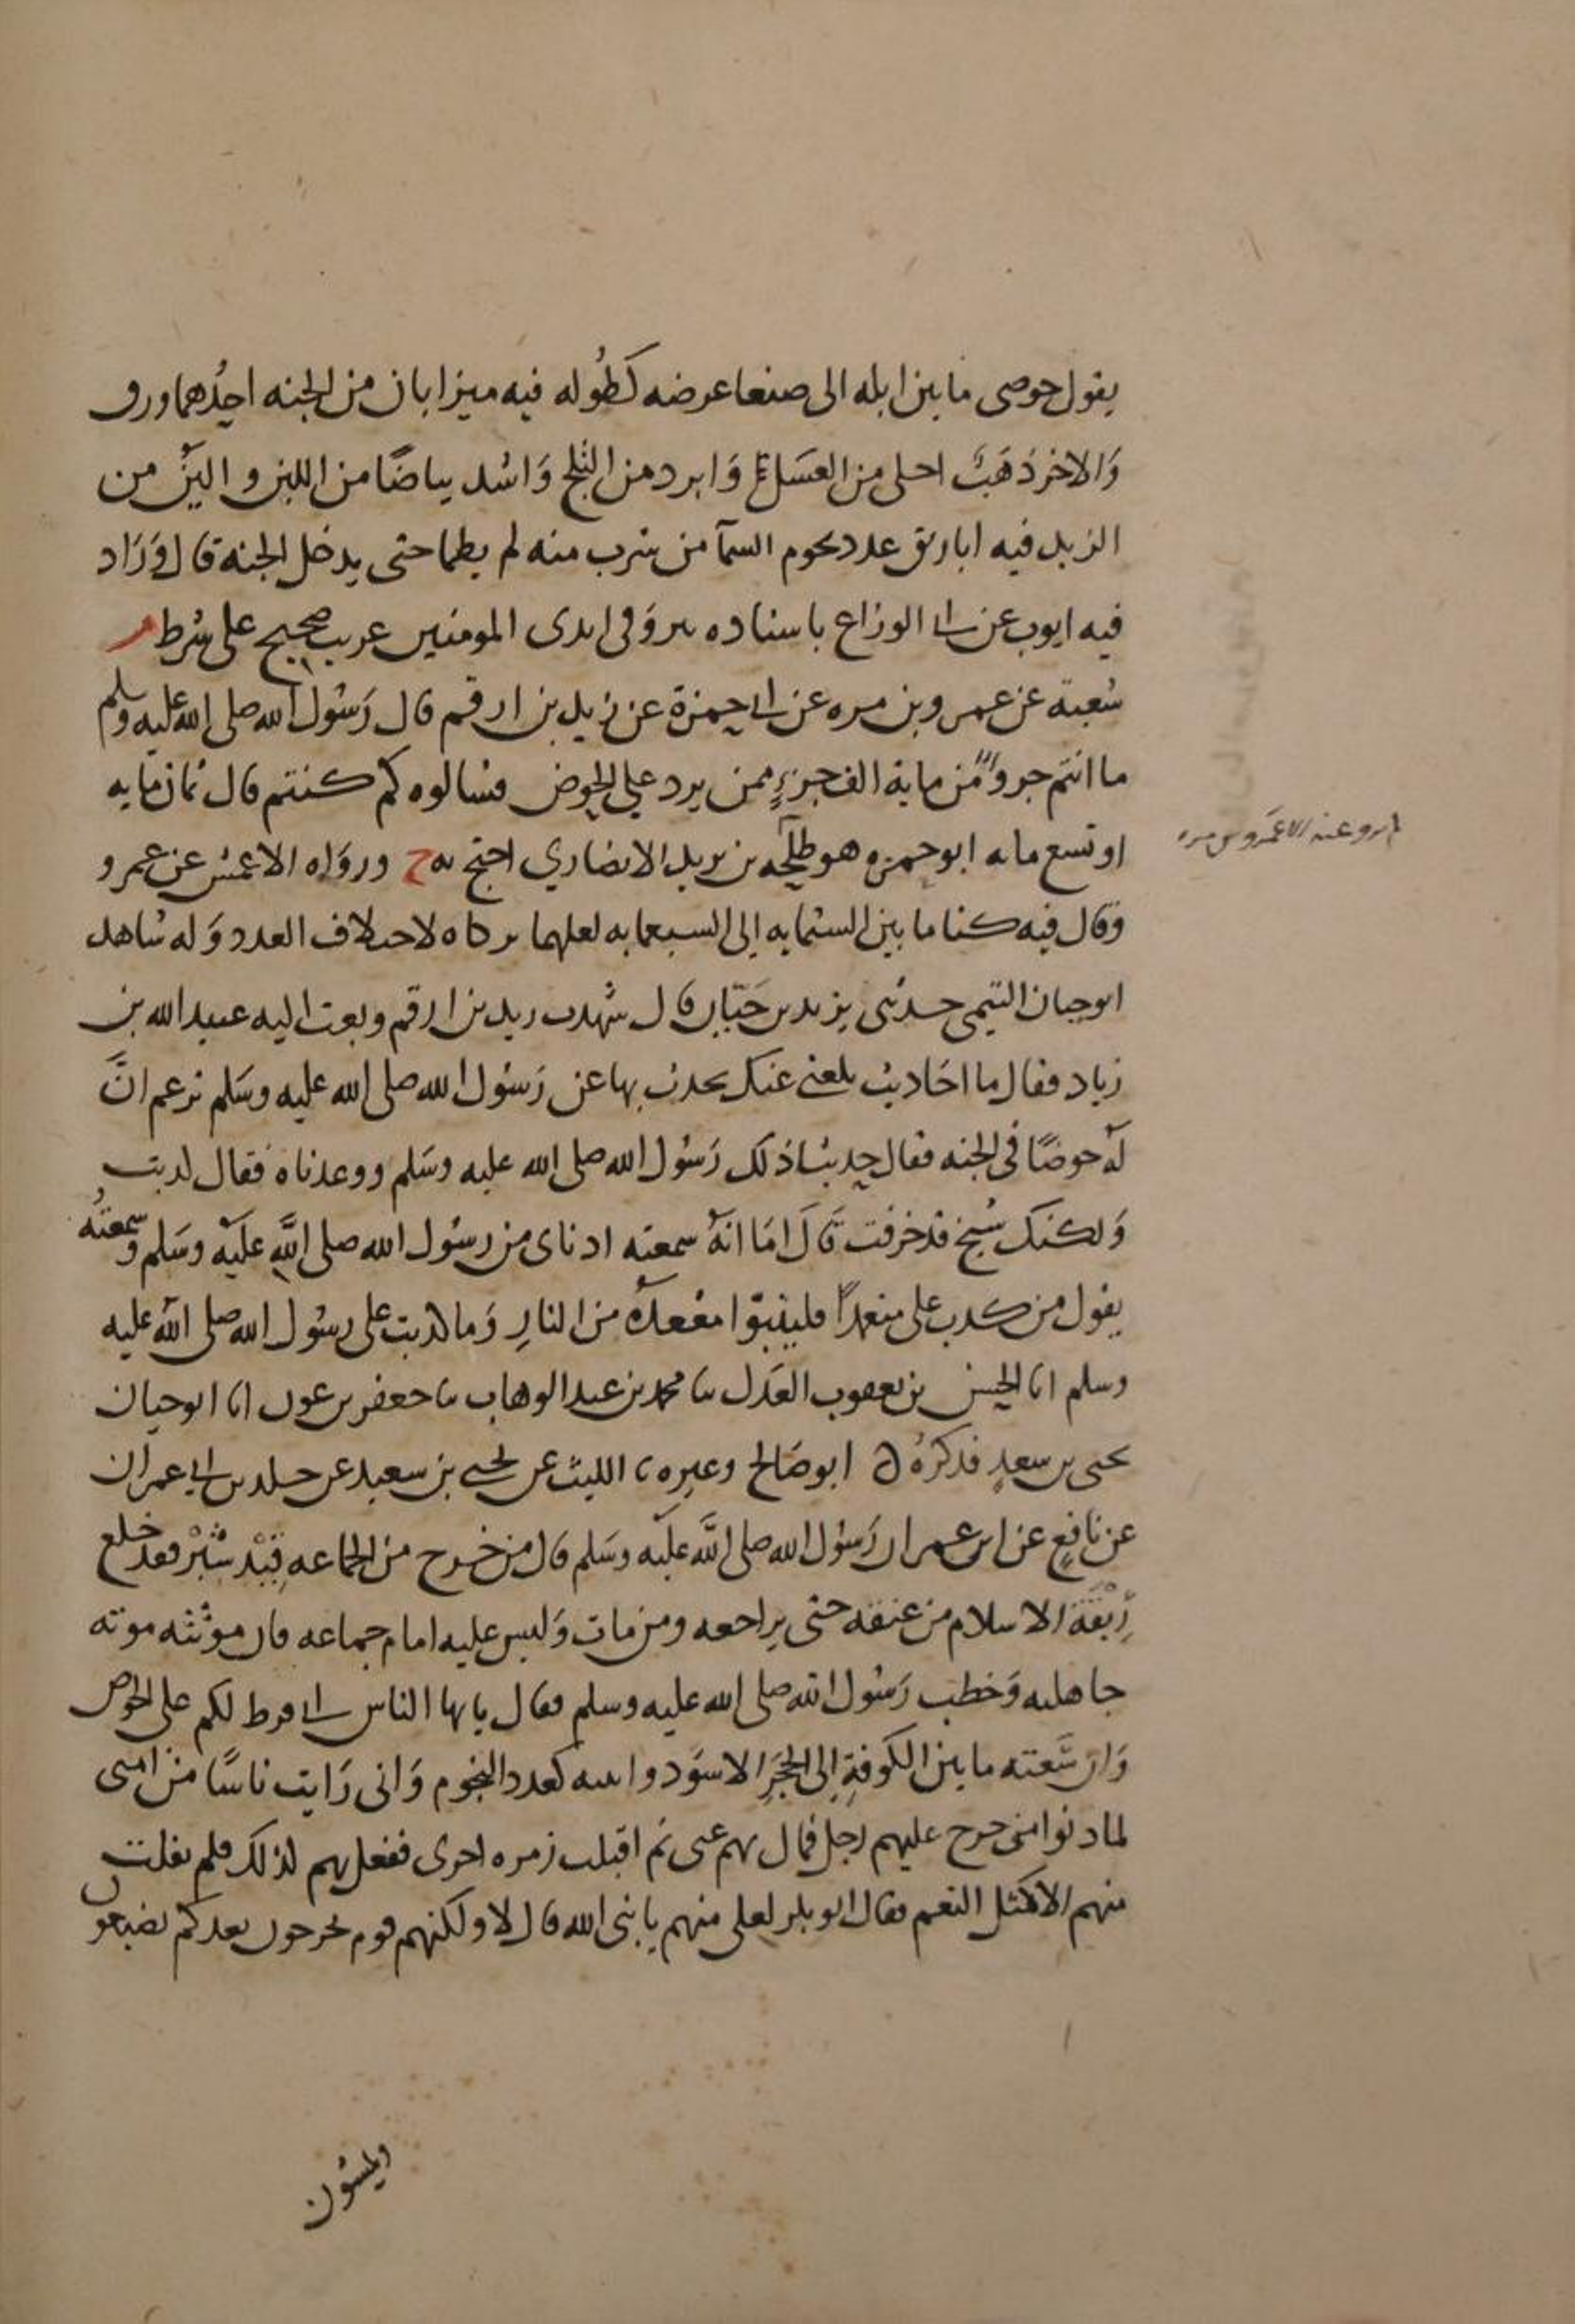 يقول حوضى ما بين ايله الى صنعا عرضه كطوله فيه ميزابان من الجنه احدهما ورق
والاخر ذهبٌ احلى من العسل وابرد من الثلج واشد بياضًا من اللبن والين من
الزبد فيه اباريق عدد نجوم السمآ من شرب منه لم يظما حتى يدخل الجنة قال وزاد
فيه ايوب عن ابى الوزاع باسناده ينزو فى ايدى المومنين غريب صحيح على شرط م
شعبة عن عمرو بن مره عن ابى حمزة عن زيد بن ارقم قال رسول الله صلى الله عليه وسلم
ما انتم جزوٌ من ماية الف جزءٍ ممن يرد علي الحوض فسالوه كم كنتم قال ثمان مايه
او تسع مايه ابو حمزه هو طلحه بن يزيد الانصاري احتج به خ ورواه الاعمش عن عمرو
وقال فيه كنا ما بين الستمايه إلى السبعمايه لعلهما تركاه لاختلاف العدد وله شاهد
ابو حيان التيمى حدثنى يزيد بن حَيَّان قال شهدت زيد بن ارقم وبعث اليه عبيد الله بن
زياد فقال ما احاديث بلغنى عنك تحدث بها عن رسول الله صلى الله عليه وسلم تزعم انَّ
له حوضًا فى الجنه فقال حدثنا ذلك رسول الله صلى الله عليه وسلم ووعدناه فقال كذبت
ولكنك شيخ قد خرفت قال اما انهُ سمعته اذناى من رسول الله صلى الله عليه وسلم وسمعتُه
يقول من كذب على متعمدًا فليتبوا مقعدهُ من النارِ وما كذبت على رسول الله صلى الله عليه
وسلم انا الحسن بن يعقوب العدل نا محمد بن عبد الوهاب نا جعفر بن عون انا ابو حيان
يحيى بن سعيدٍ فذكرهُ ابو صالح وغيره نا الليث عن يحيى بن سعيد عن خلد بن ابى عمران
عن نافعٍ عن ابن عمر ان رسول الله صلى الله عليه وسلم قال من خرج من الجماعه قِيْدَ شِبْرٍ فقد خلع
رِبْقَةَ الاسلام من عنقه حتى يراجعه ومن مات وليس عليه امام جماعه فان موتته موته
جاهليه وخطب رسول الله صلى الله عليه وسلم فقال يايها الناس انى فرط لكم على الحوض
وان سَعته ما بين الكوفةِ إلى الحَجَرِ الاسود وانيته كعدد النجوم وانى رايت ناسًا من امتى
لما دنوا منى خرج عليهم رجل فمال بهم عنى ثم اقبلت زمره اخرى ففعل بهم كذلك فلم يفلت
منهم الا كمثل النعم فقال ابو بكر لعلى منهم يا نبى الله قال لا ولكنهم قوم يخرجون بعدكم يضيعون
ويمشون
لم يرو عنه الا عَمرو بن مره